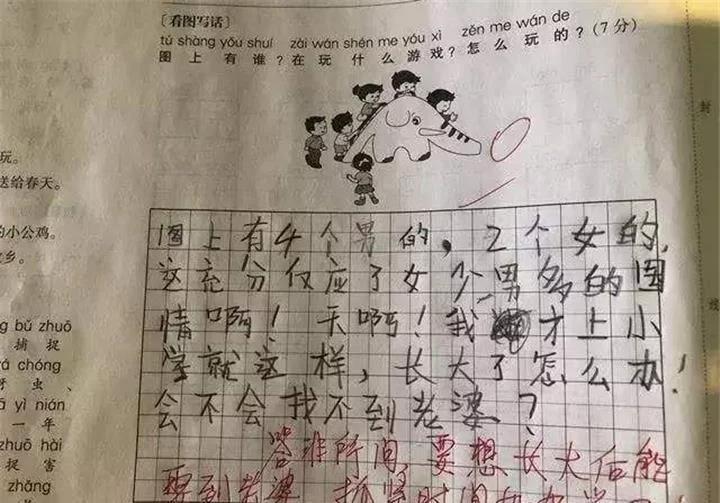 [看图写话]
tú shàng yǒu shuí zài wán shén me yóu xì zěn me wán de
图上有谁?在玩什么游戏?怎么玩的?(7分)
图上有4个男的,2个女的,
这充分仅应了女少男多的国
情啊!天啊!我才上小
学就这样,长大了怎么办!
会不会找不到老婆?
答非所问,要想长大后能
娶到老婆,抓紧时间
玩。
送给春天。
的小公鸡。
乡。
ng bǔ zhuō
捕捉
rá chóng
虫、
yì nián
一年
zhuō hài
捉害
zhǎng
封
线